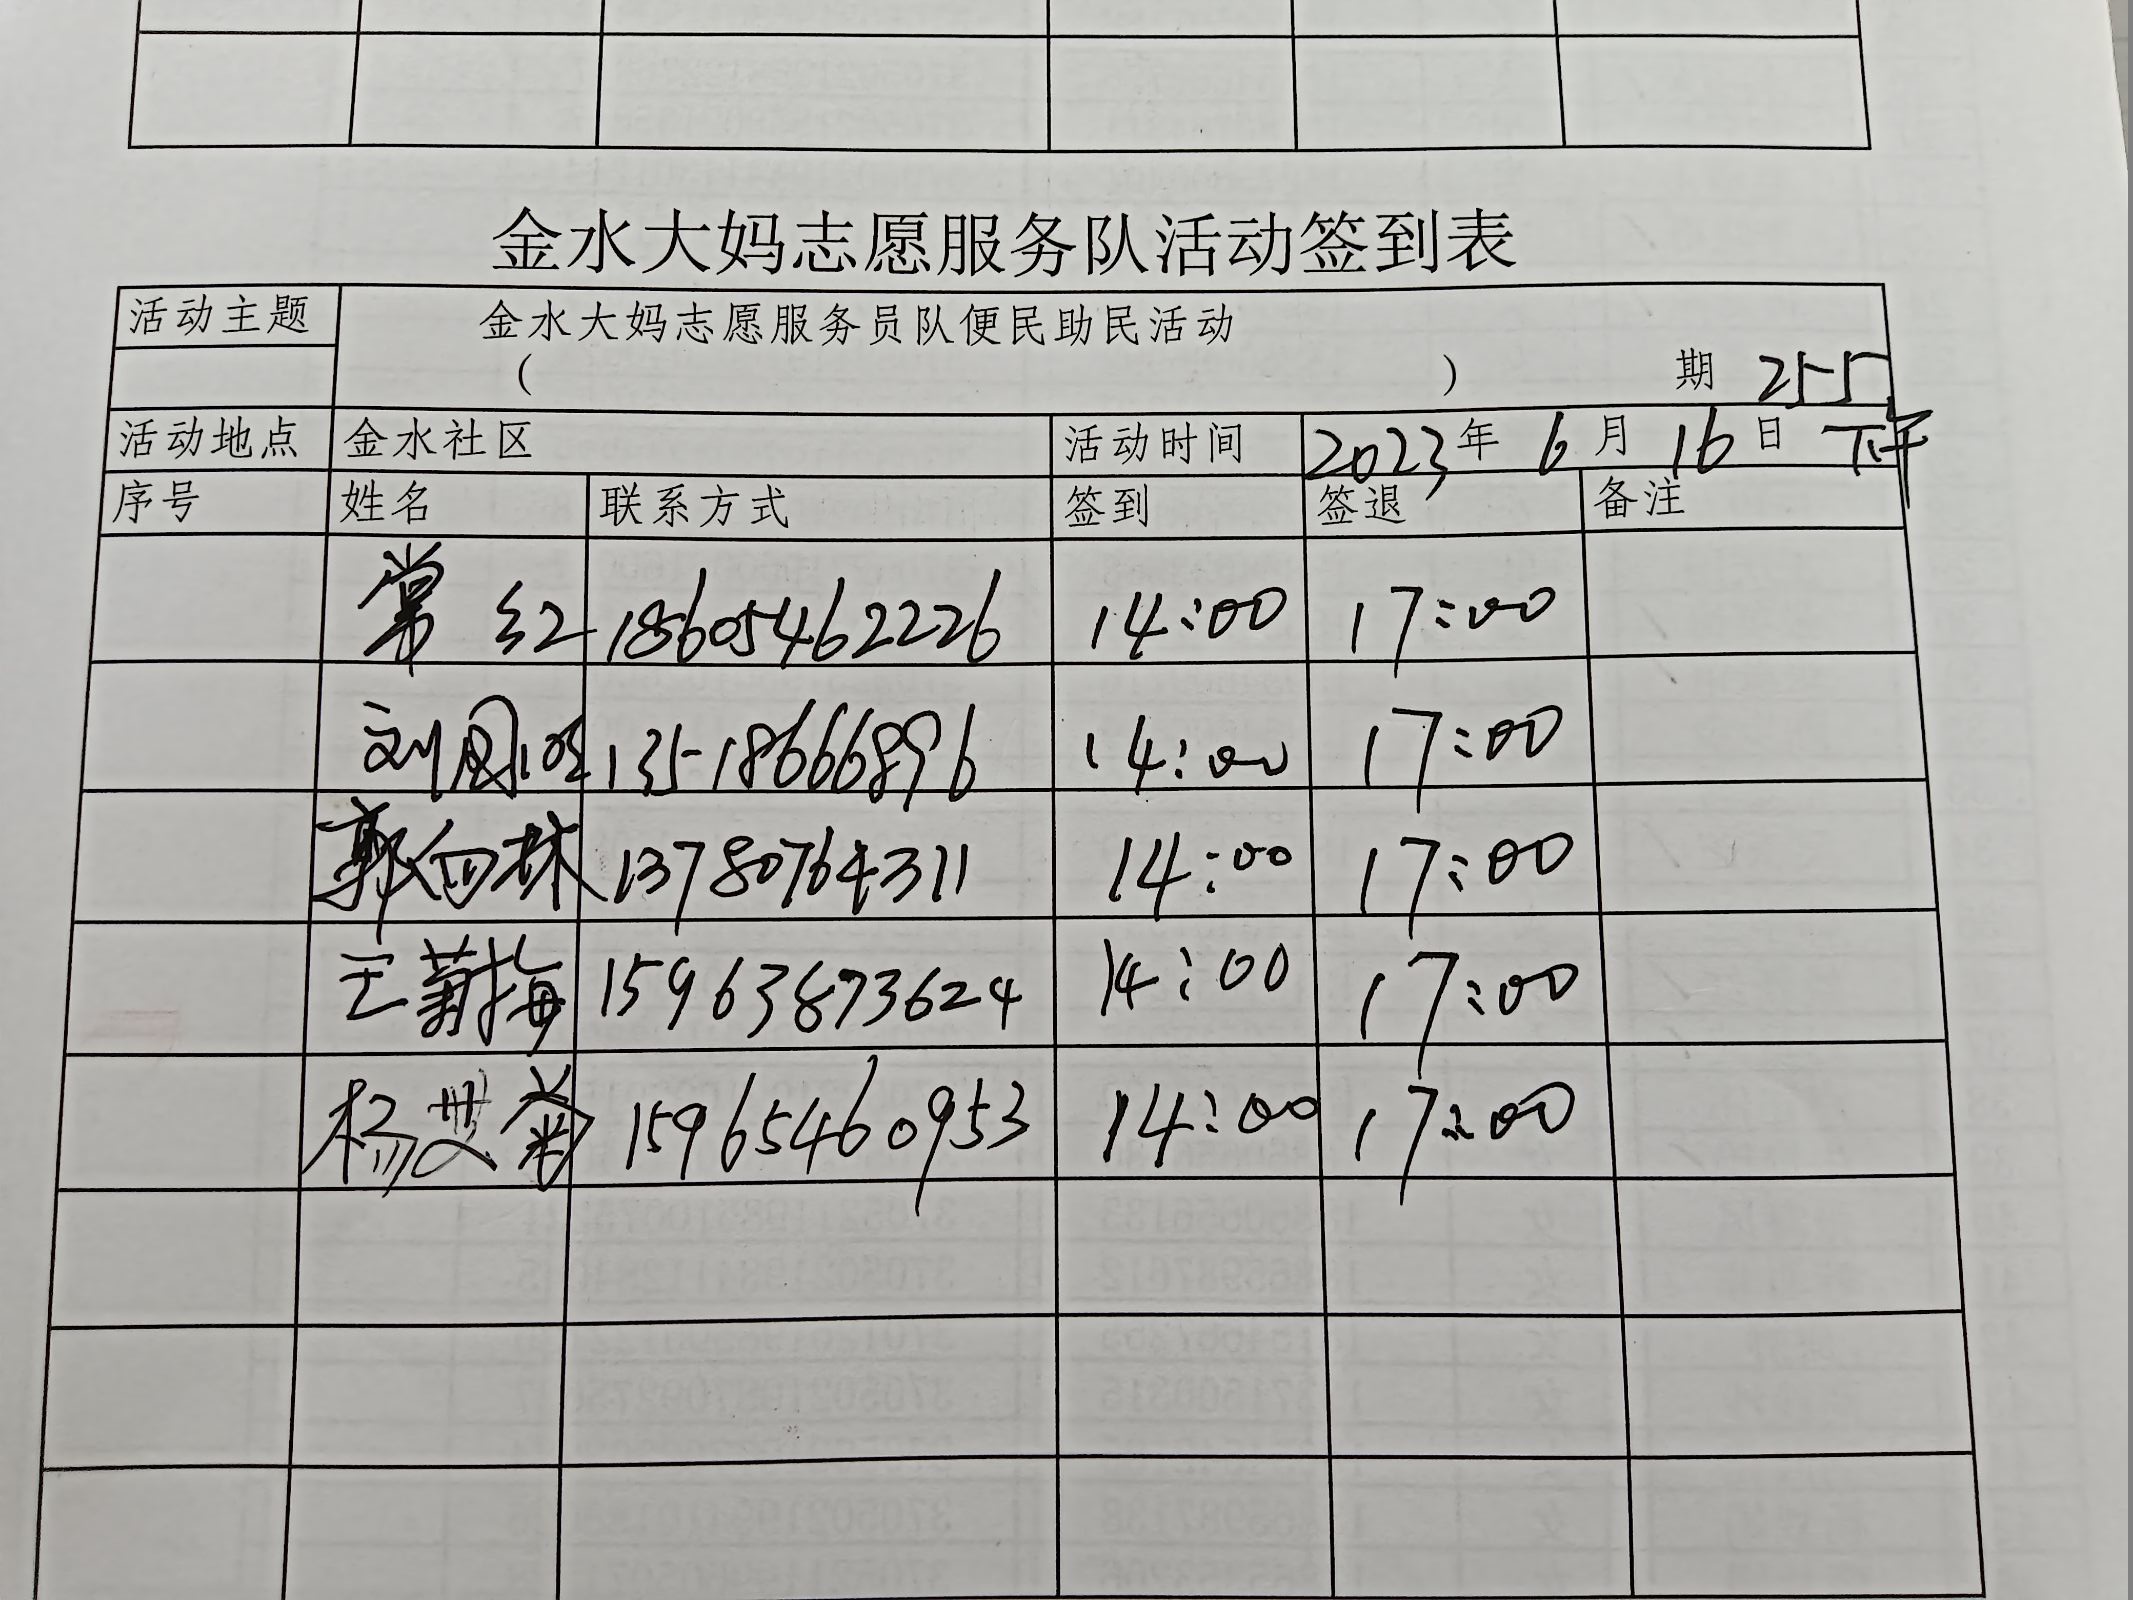 金水大妈志愿服务队活动签到表
活动主题 金水大妈志愿服务员队便民助民活动
( ) 期 255
活动地点 金水社区 活动时间 2023年 6月 16日 下午
序号 姓名 联系方式 签到 签退 备注
常红 18605462226 14:00 17:00
刘凤 13518666896 14:00 17:00
郭向林 13780764311 14:00 17:00
王菊梅 15963873624 14:00 17:00
杨爱菊 15965460953 14:00 17:00